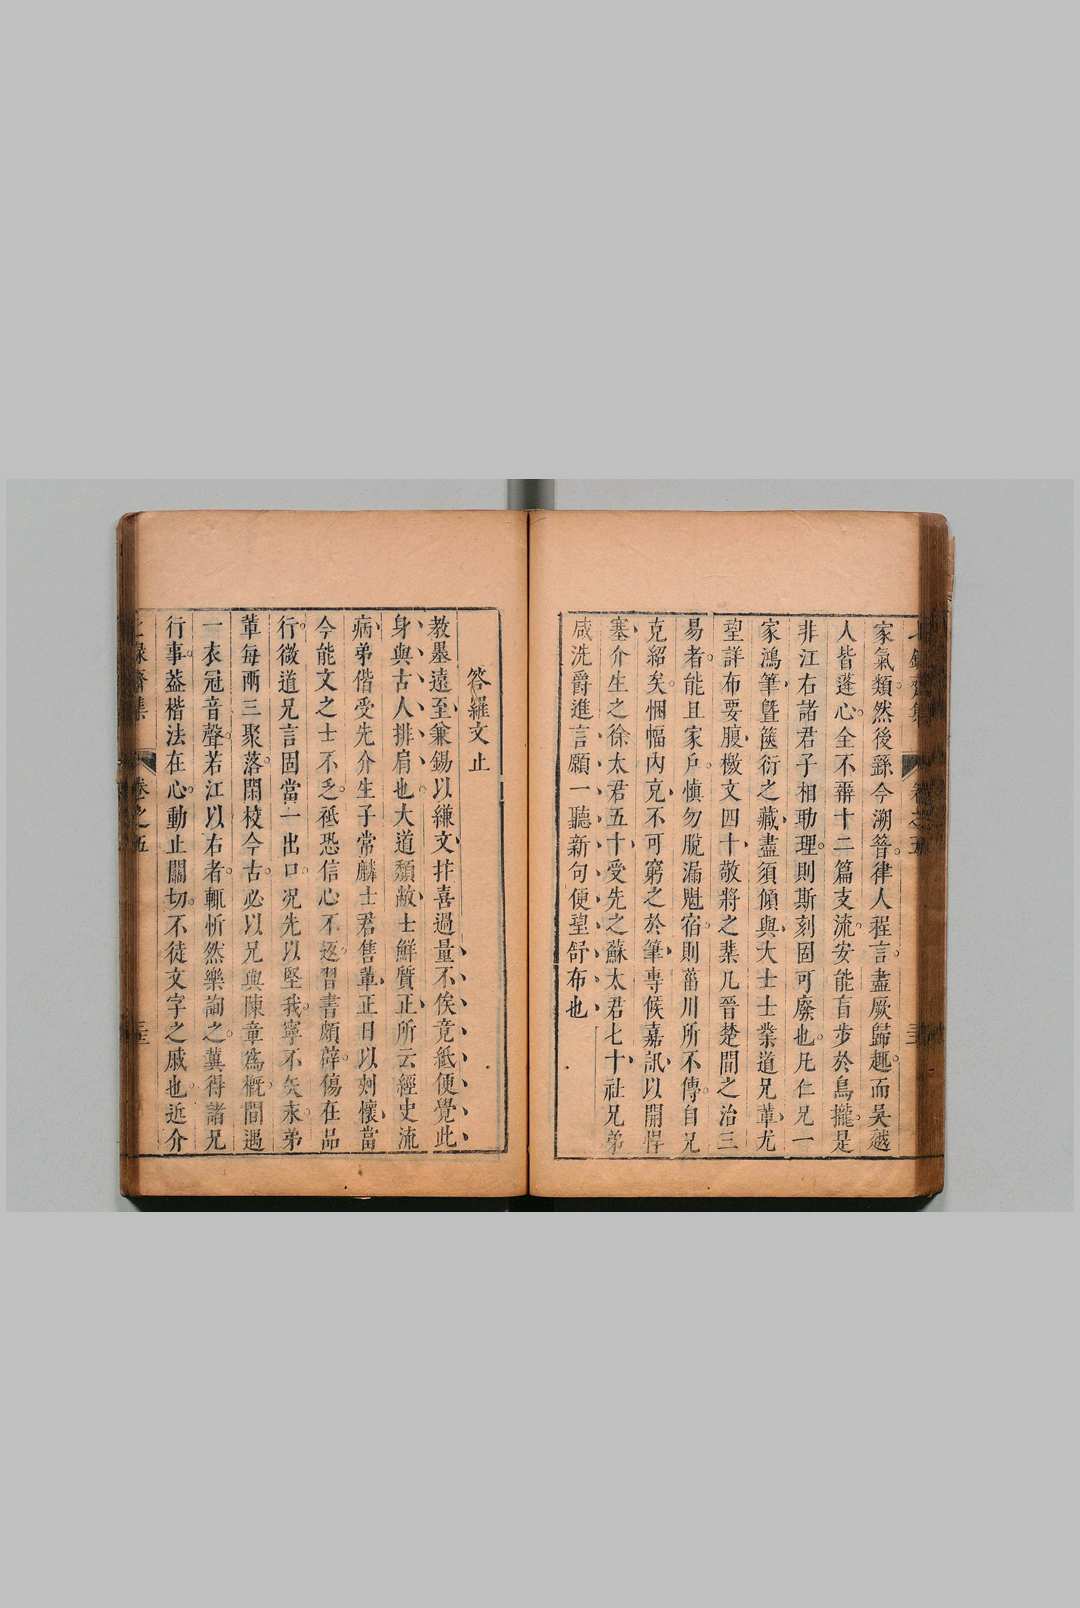 家氣類然後繇今溯昝律人程言盡厥歸趣而吳越
人皆蓬心全不辨十二篇支流安能盲步於鳥攏是
非江右諸君子相助理則斯刻固可廢也凡仁兄一
家鴻筆曁篋衍之藏盡須傾與大士士業道兄輩尤
朢詳布要腹檄文四十敬將之棐几晉楚間之治三
易者能且家戶愼勿脫漏魁宿則菑川所不傳自兄
克紹矣悃愊內克不可窮之於筆專候嘉訊以開悍
塞介生之徐太君五十受先之蘇太君七十社兄弟
咸洗爵進言願一聽新句便朢舒布也
答羅文止
教墨遠至兼錫以縑文拜喜過量不俟竟紙便覺此
身與古人排肩也大道頽敝士鮮質正所云經史流
病弟偕受先介生子常麟士君售輩正日以刺懷當
今能文之士不乏秪恐信心不返習書頗薛傷在品
行微道兄言固當一出口况先以堅我寧不矢永弟
輩每兩三聚落閑校今古必以兄與陳章爲概間遇
一衣冠音聲若江以右者輒忻然樂詢之冀得諸兄
行事葢楷法在心動止關切不徒文字之戚也近介
卷之五